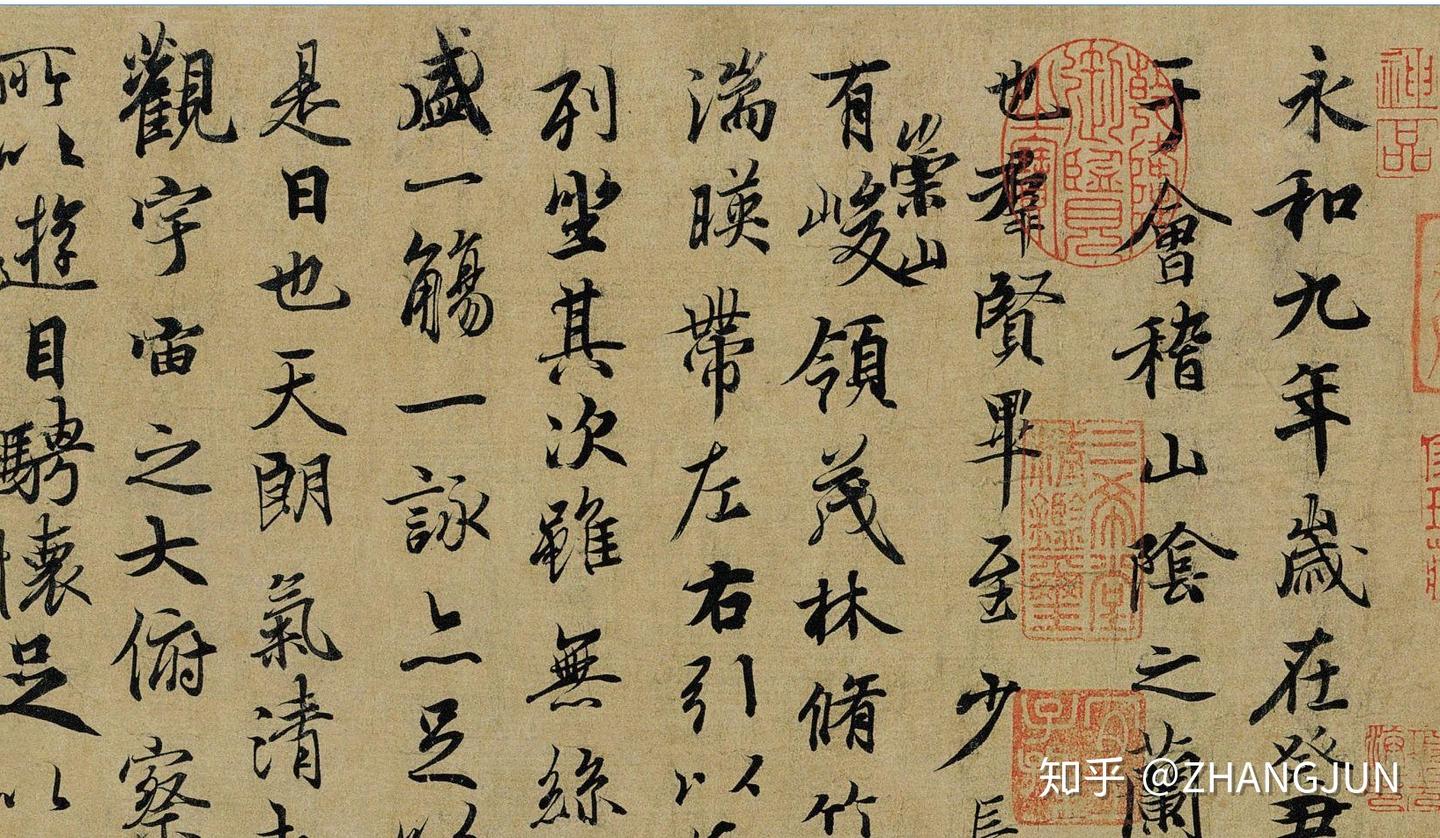 永和九年歲在癸丑
于會稽山陰之蘭
也羣賢畢至少長
崇山
有峻領茂林脩竹
湍暎帶左右引以
列坐其次雖無絲
盛一觴一詠亦足以
是日也天朗氣清
觀宇宙之大俯察
所以遊目騁懷足以
神品
三希堂精鑑璽
宜子孫
知乎 @ZHANGJUN